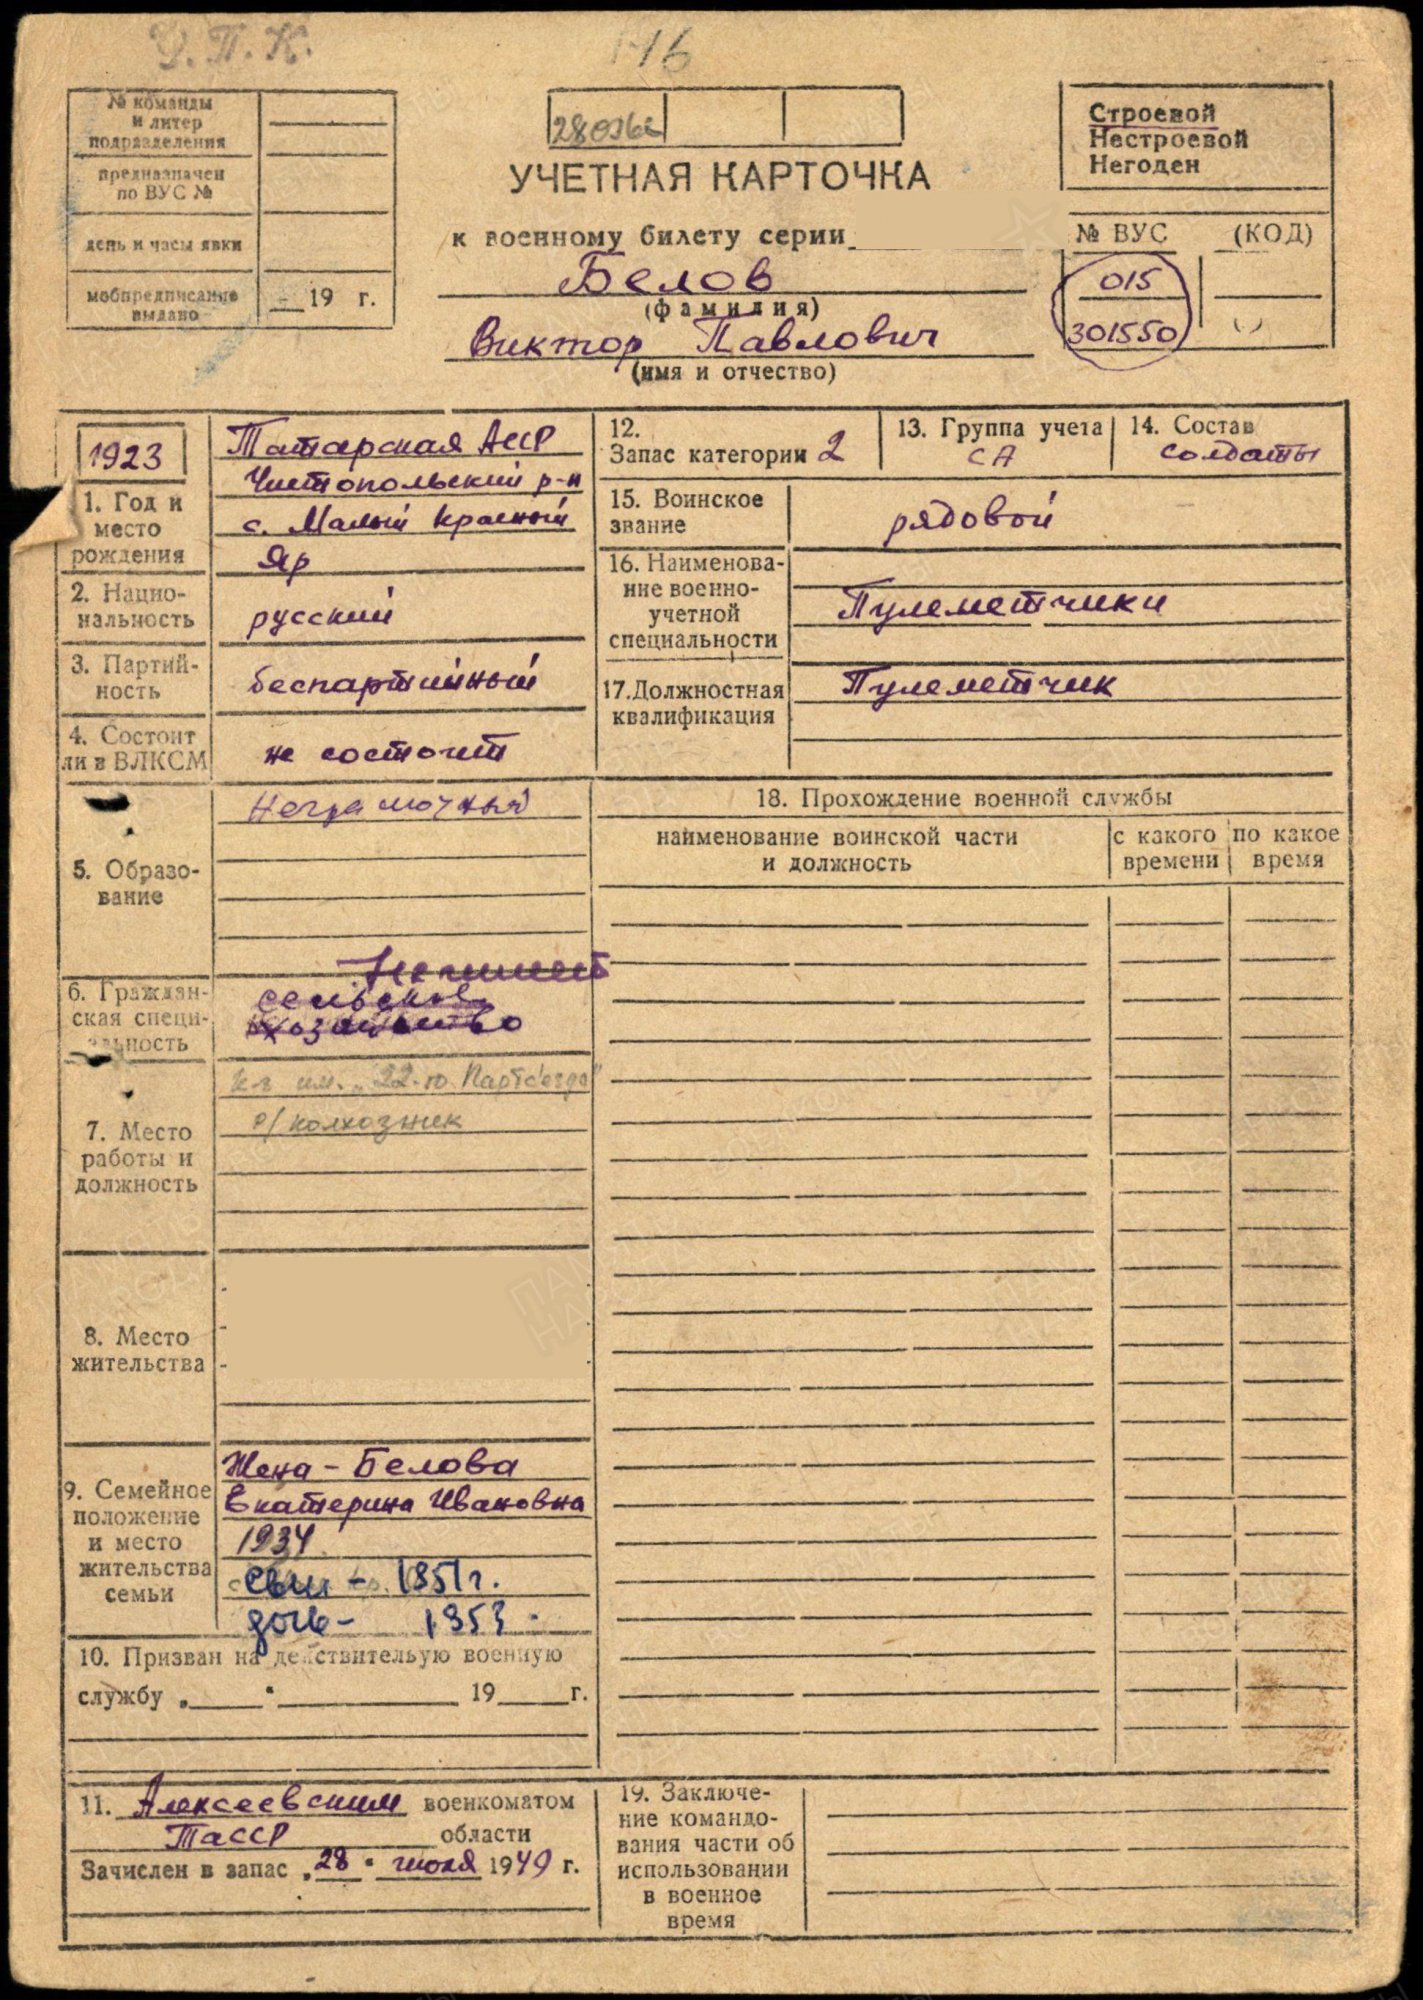 У.П.К.
176
№ команды
и литер
подразделения
предназначен
по ВУС №
день и часы явки
мобпредписание
выдано
19 г.
УЧЕТНАЯ КАРТОЧКА
к военному билету серии
Белов
(фамилия)
Виктор Павлович
(имя и отчество)
Строевой
Нестроевой
Негоден
№ ВУС (КОД)
015
301550
1923
1. Год и
место
рождения
Татарская АССР
Чистопольский р-н
с. Малый Красный
Яр
2. Нацио-
нальность
русский
3. Партий-
ность
беспартийный
4. Состоит
ли в ВЛКСМ
не состоит
5. Образо-
вание
Неграмотный
6. Граждан-
ская специ-
альность
Не имеет
сельское
хозяйство
7. Место
работы и
должность
к-з им. "22-го Партсъезда"
р/колхозник
8. Место
жительства
9. Семейное
положение
и место
жительства
семьи
Жена - Белова
Екатерина Ивановна
1934
сын - 1951г.
дочь - 1953
10. Призван на действительную военную
службу „ “ 19 г.
11. Алексеевским военкоматом
ТАССР области
Зачислен в запас „28“ июля 1949 г.
12.
Запас категории 2
13. Группа учета
СА
14. Состав
солдаты
15. Воинское
звание
рядовой
16. Наименова-
ние военно-
учетной
специальности
Пулеметчики
17. Должностная
квалификация
Пулеметчик
18. Прохождение военной службы
наименование воинской части
и должность
с какого
времени
по какое
время
19. Заключе-
ние командо-
вания части об
использовании
в военное
время